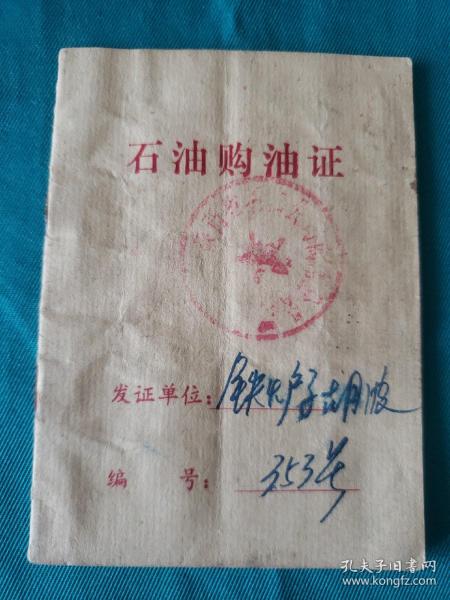 石油购油证
发证单位：铁炉子胡波
编 号：353号
孔夫子旧书网
www.kongfz.com